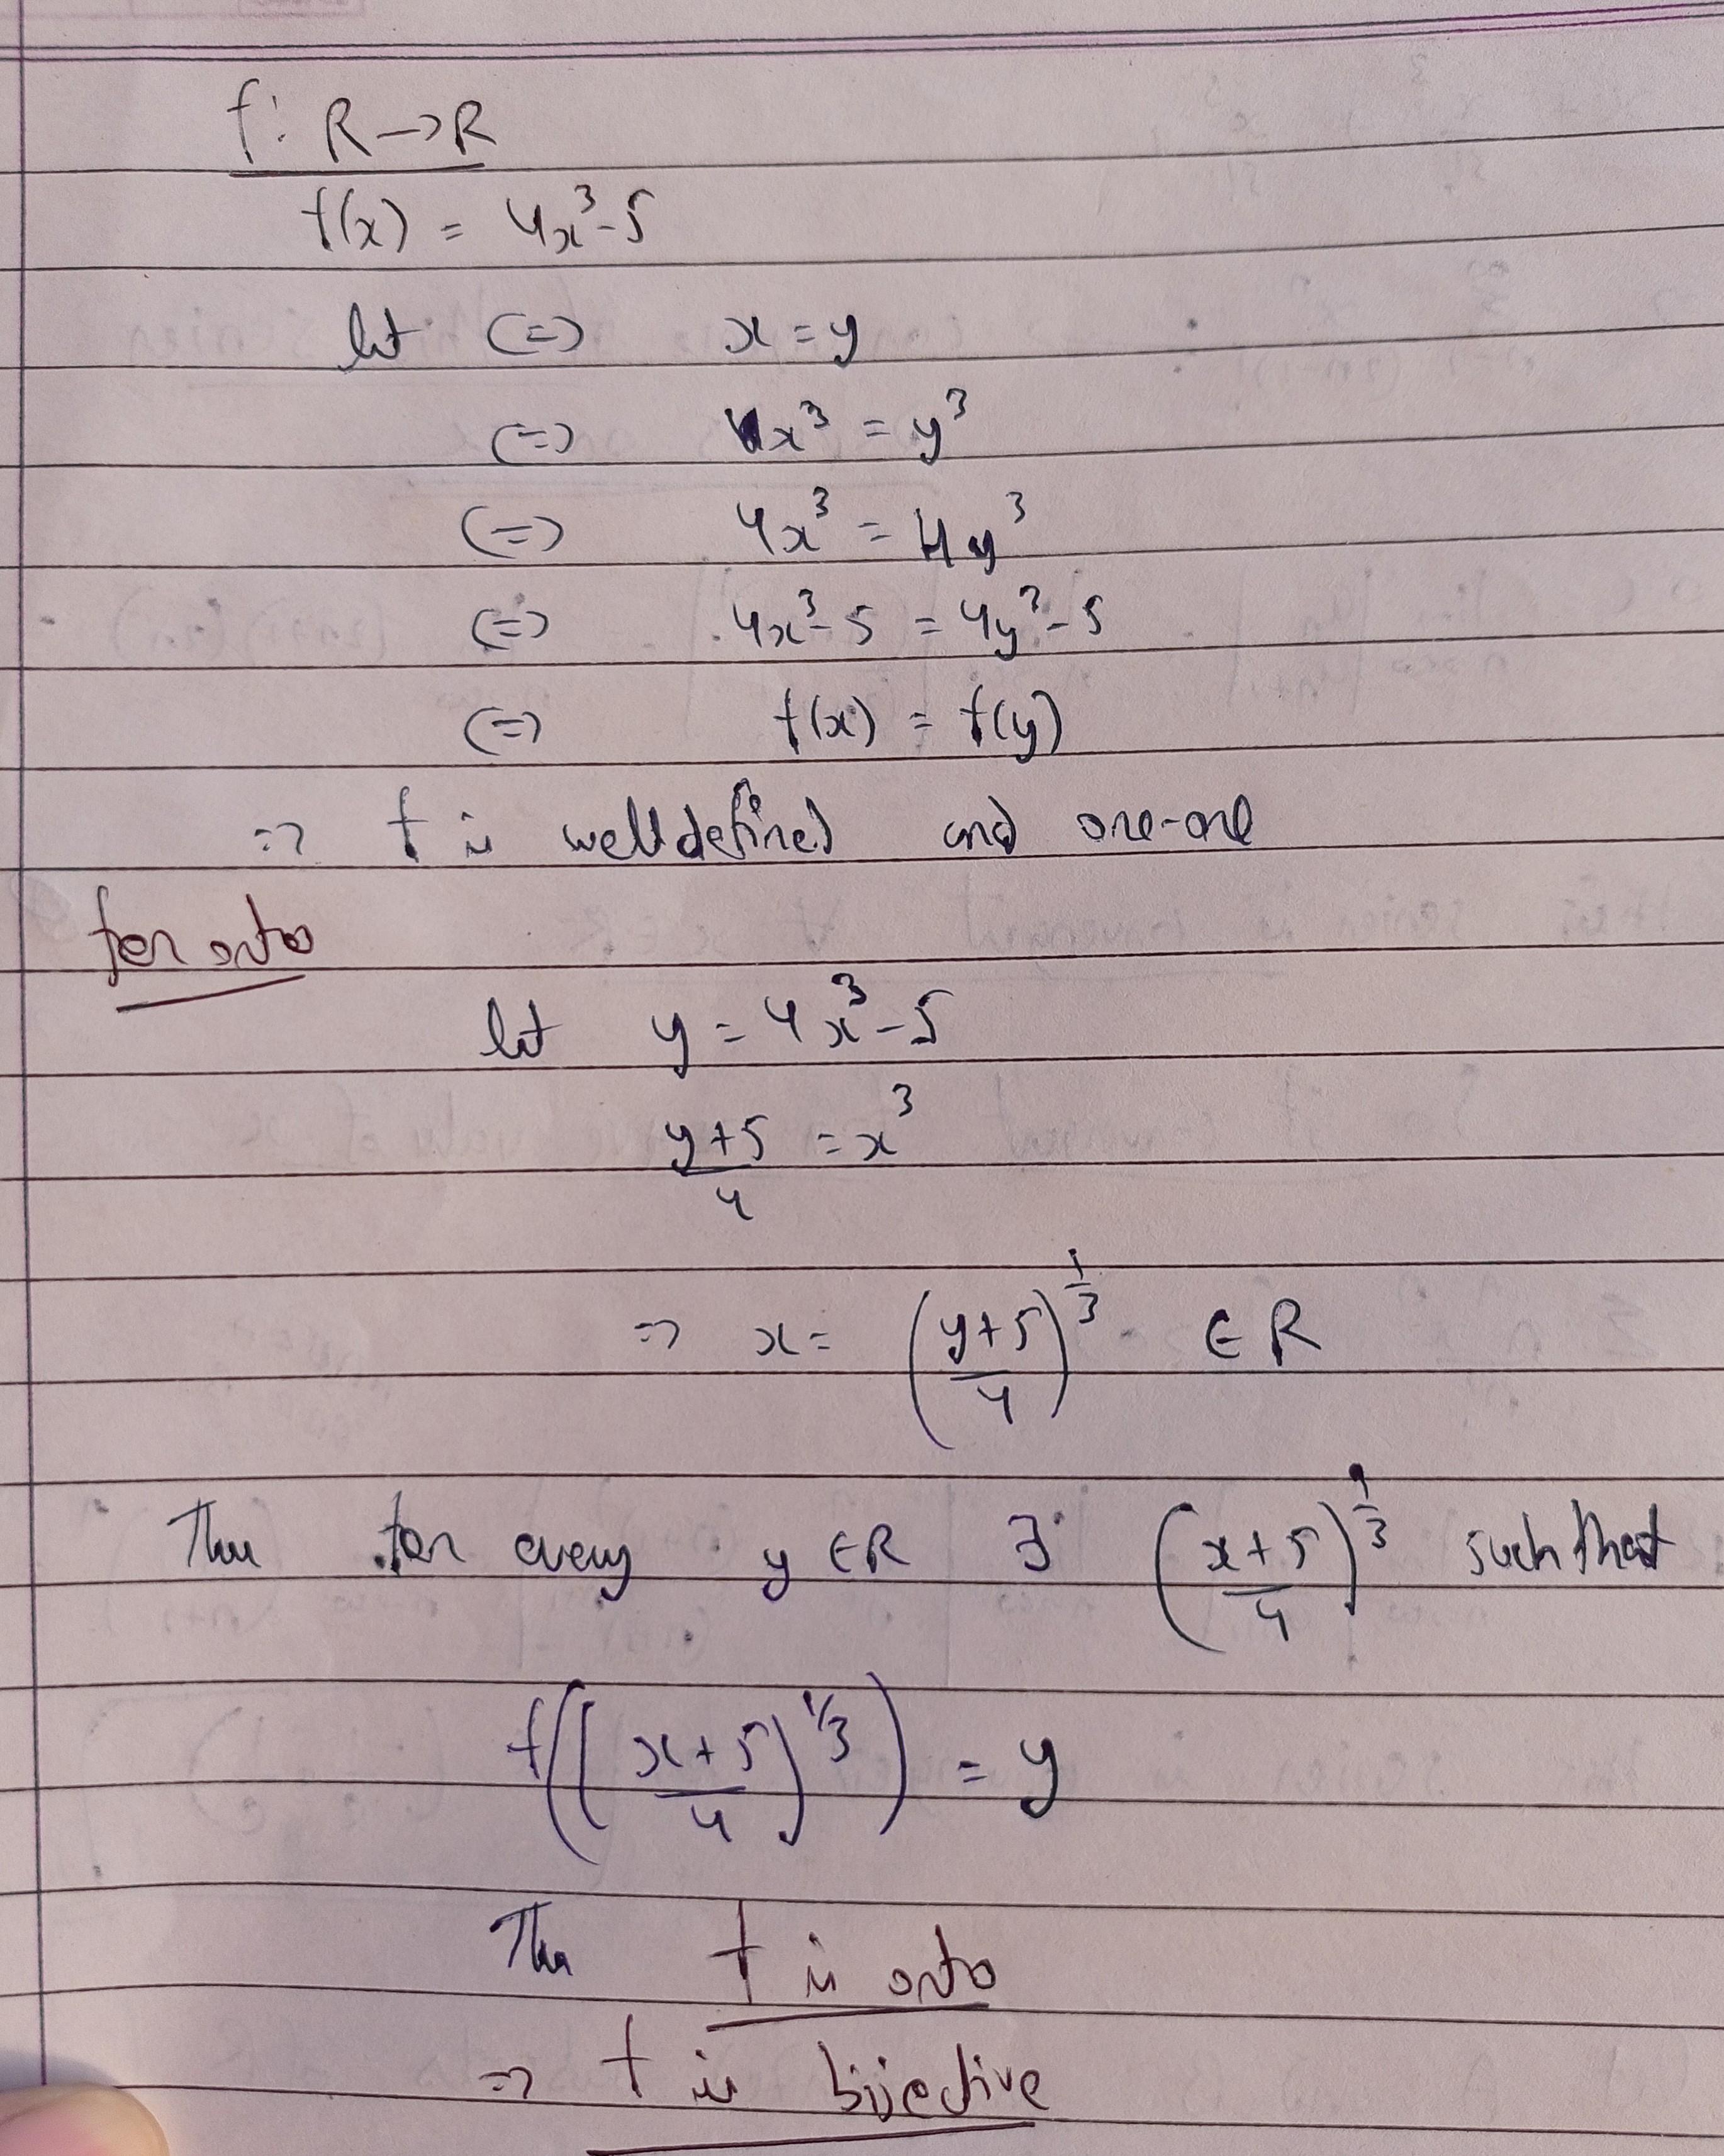 f: R→R
f(x) = 4x³-5
let (=) x = y
(=) x³ = y³
(=) 4x³ = 4y³
(=) 4x³-5 = 4y³-5
(=) f(x) = f(y)
=> f is well defined and one-one
for onto
let y = 4x³-5
(y+5)/4 = x³
=> x = ((y+5)/4)^(1/3) ∈ R
Thus for every y ∈ R ∃ ((x+5)/4)^(1/3) such that
f(((x+5)/4)^(1/3)) = y
Thus f is onto
=> f is bijective